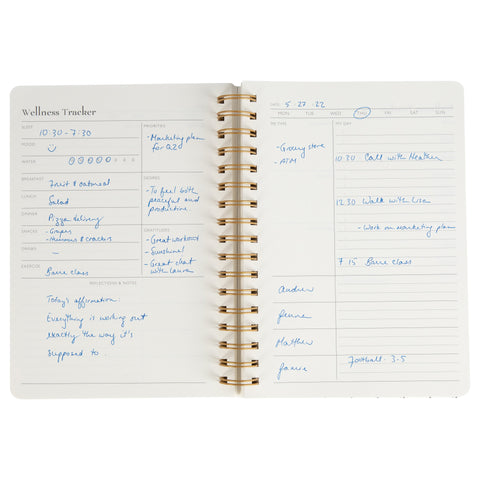 Wellness Tracker
SLEEP
10:30 - 7:30
MOOD
WATER
BREAKFAST
Fruit & oatmeal
LUNCH
Salad
DINNER
Pizza delivery
SNACKS
- Grapes
- Hummus & crackers
DRINKS
EXERCISE
Barre class
PRIORITIES
- Marketing plan
for Q2
DESIRES
- To feel both
peaceful and
productive.
GRATITUDES
- Great workout
- Sunshine!
- Great chat
with Laura
REFLECTIONS & NOTES
Today's affirmation:
Everything is working out
exactly the way it's
supposed to.
DATE: 5-27-22
MON TUES WED THU FRI SAT SUN
- Grocery store
- ATM
MY DAY
10:30 Call with Heather
12:30 Walk with Lisa
- Work on marketing plan
7:15 Barre class
Andrew
Matthew
Football 3-5